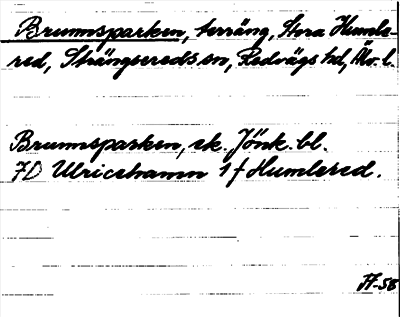 Brunnsparken, terräng, Stora Humle-
red, Strängsereds sn, Redvägs hd, Älv. l.
Brunnsparken, ek. Jönk. bl.
7D Ulricehamn 1 f Humlered.
FF-58